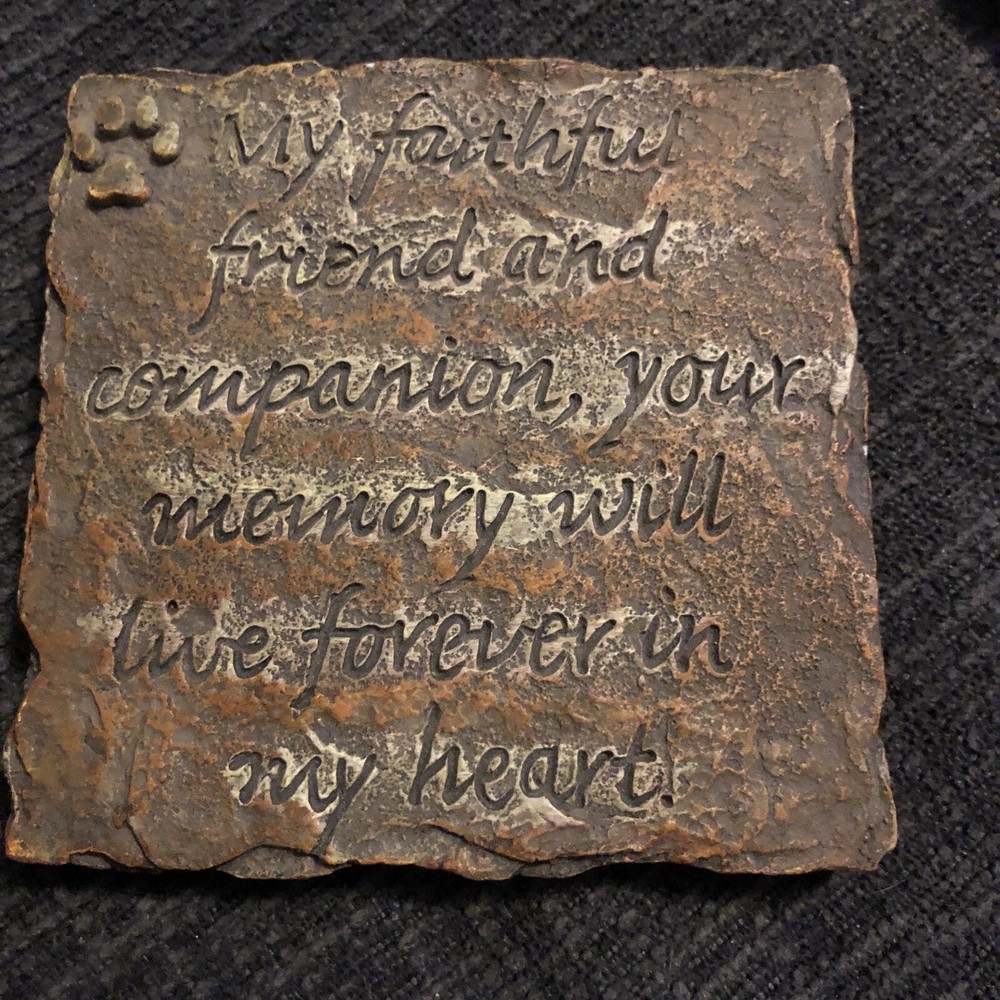 My faithful
friend and
companion, your
memory will
live forever in
my heart!